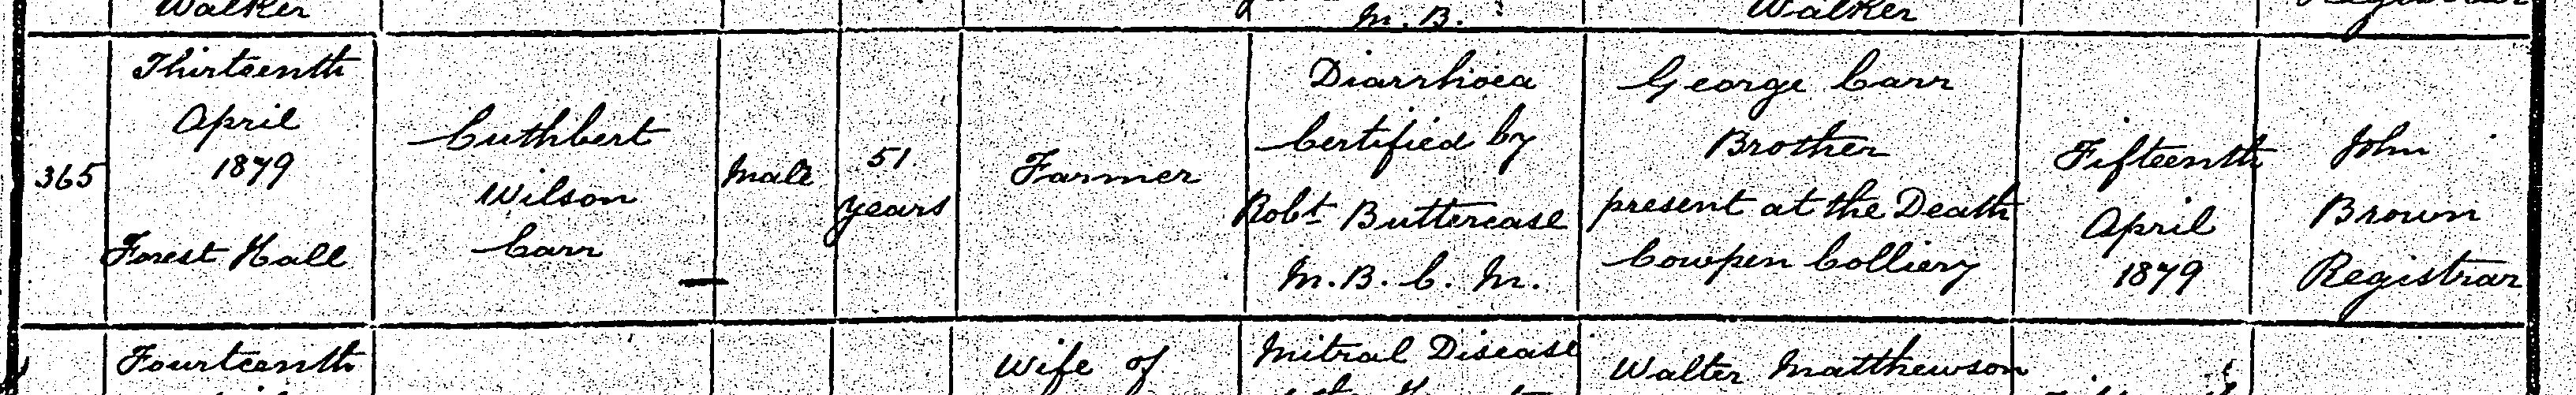 Walker
M. B.
Walker
365
Thirteenth
April
1879
Forest Hall
Cuthbert
Wilson
Carr
Male
51
years
Farmer
Diarrhoea
Certified by
Robt Buttercase
M.B. C. M.
George Carr
Brother
present at the Death
Cowpen Colliery
Fifteenth
April
1879
John
Brown
Registrar
Fourteenth
Wife of
Mitral Disease
Walter Matthewson